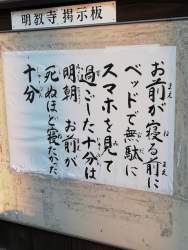 明教寺掲示板
お前が寝る前に
ベッドで無駄に
スマホを見て
過ごした十分は
明朝 お前が
死ぬほど寝たかった
十分